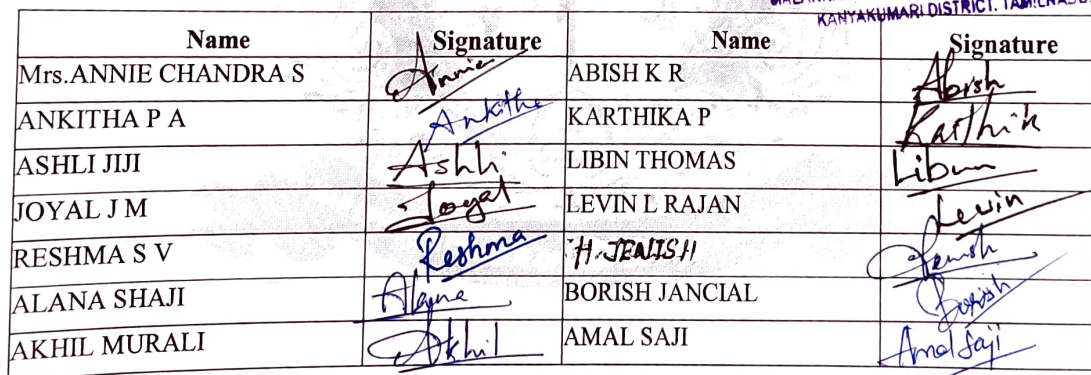 KANYAKUMARI DISTRICT. TAMILNADU
Name Signature Name Signature
Mrs.ANNIE CHANDRA S Annie ABISH K R Abish
ANKITHA P A Ankitha KARTHIKA P Karthik
ASHLI JIJI Ashli LIBIN THOMAS Libin
JOYAL J M Joyal LEVIN L RAJAN Levin
RESHMA S V Reshma H. JENISH Jenish
ALANA SHAJI Alana BORISH JANCIAL Borish
AKHIL MURALI Akhil AMAL SAJI Amal Saji